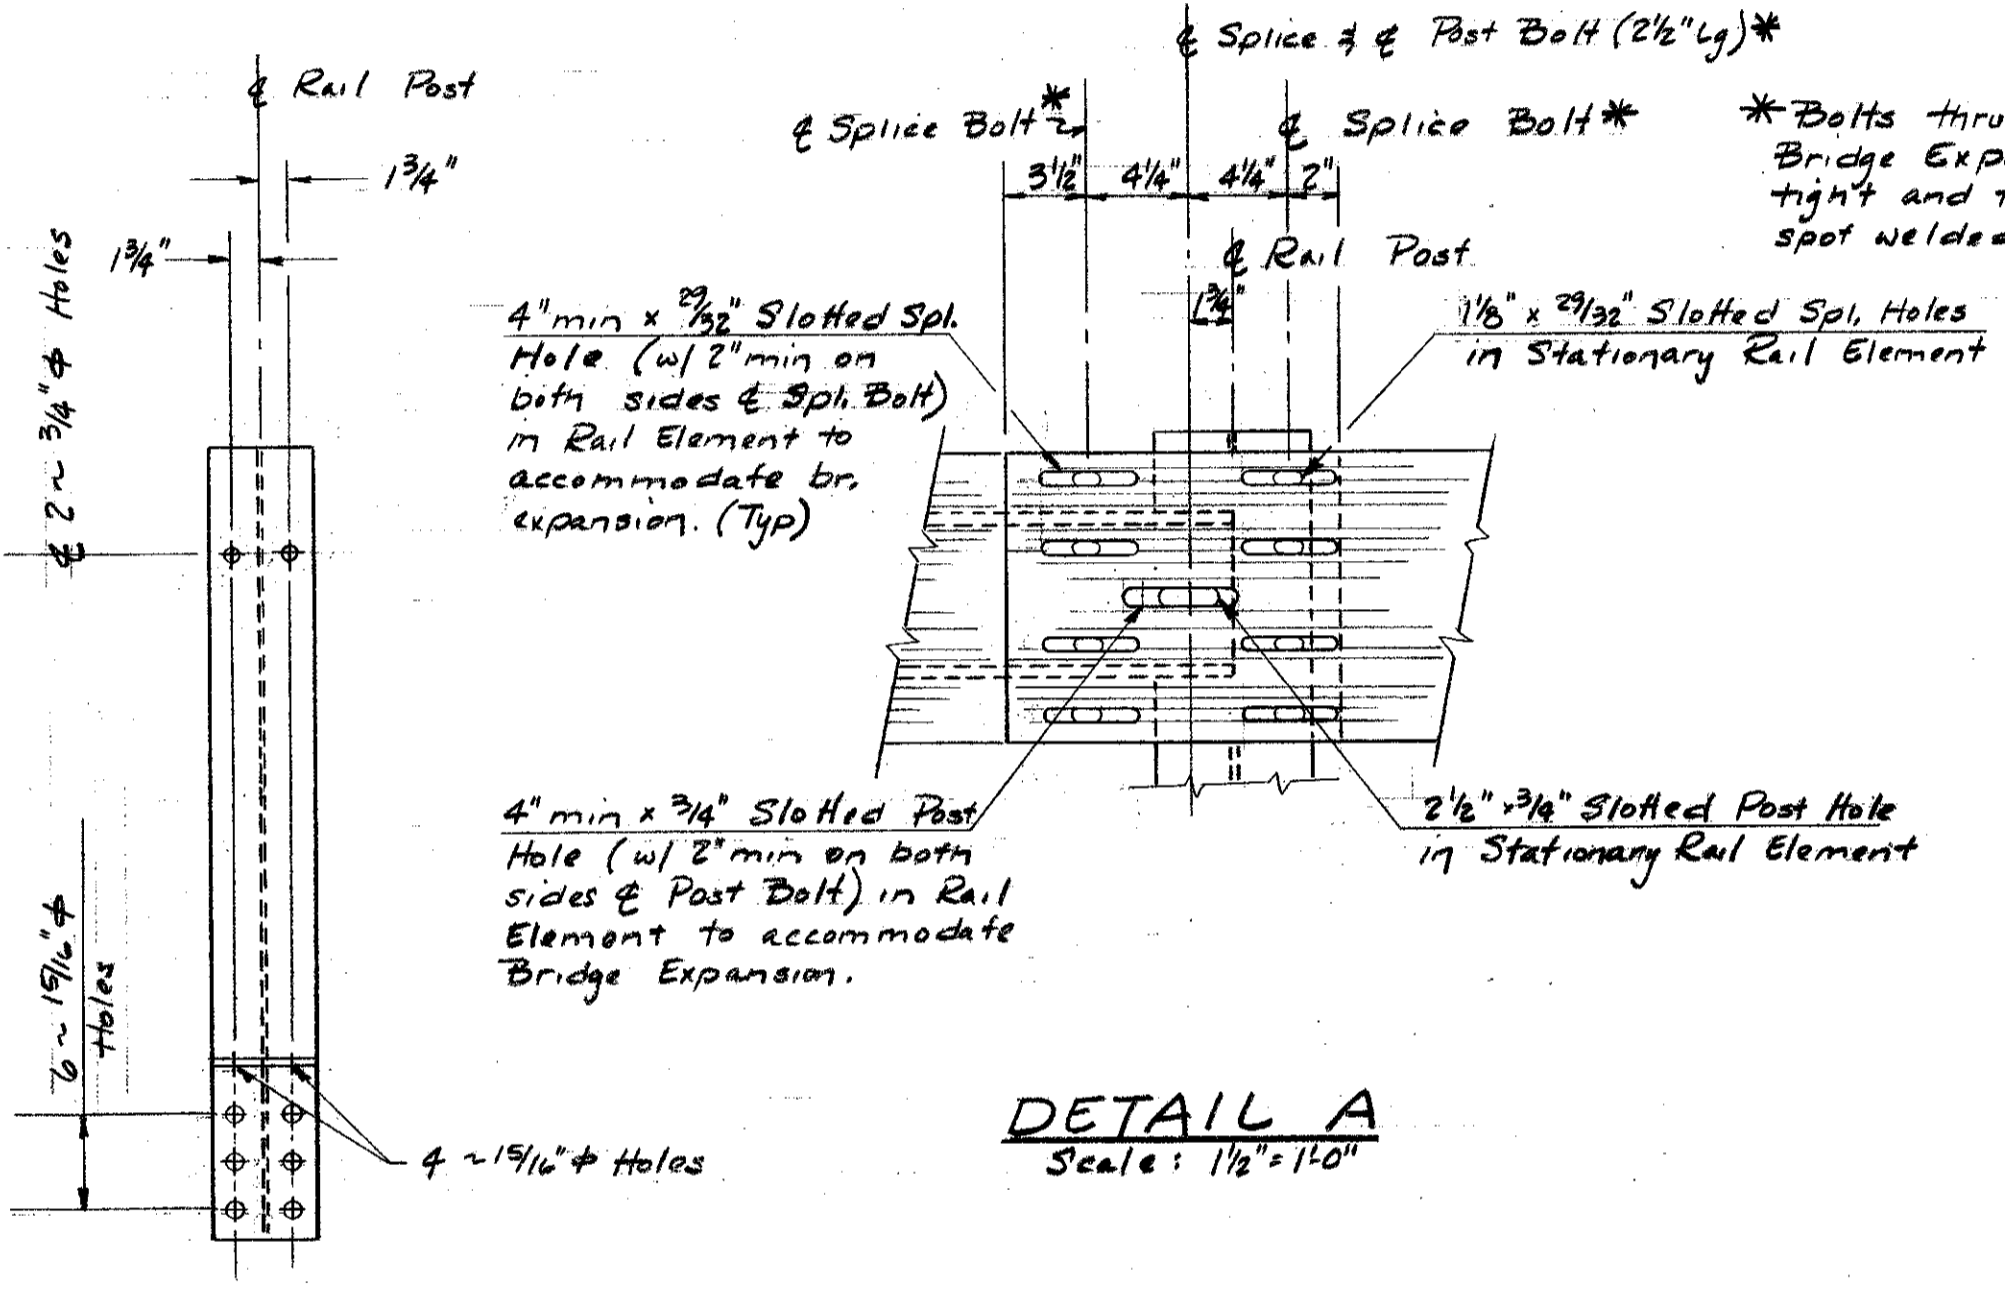 ℄ Rail Post
1 3/4"
1 3/4"
℄ 2 ~ 3/4" ϕ Holes
6 ~ 15/16" ϕ
Holes
4 ~ 15/16" ϕ Holes
℄ Splice & ℄ Post Bolt (2 1/2" Lg) *
℄ Splice Bolt *
℄ Splice Bolt *
3 1/2" 4 1/4" 4 1/4" 2"
℄ Rail Post
1 3/4"
* Bolts thru
Bridge Exp
tight and
spot welde
4" min x 29/32" Slotted Spl.
Hole (w/ 2" min on
both sides ℄ Spl. Bolt)
in Rail Element to
accommodate br.
expansion. (Typ)
1 1/8" x 29/32" Slotted Spl. Holes
in Stationary Rail Element
4" min x 3/4" Slotted Post
Hole (w/ 2" min on both
sides ℄ Post Bolt) in Rail
Element to accommodate
Bridge Expansion.
2 1/2" x 3/4" Slotted Post Hole
in Stationary Rail Element
DETAIL A
Scale: 1 1/2" = 1'-0"